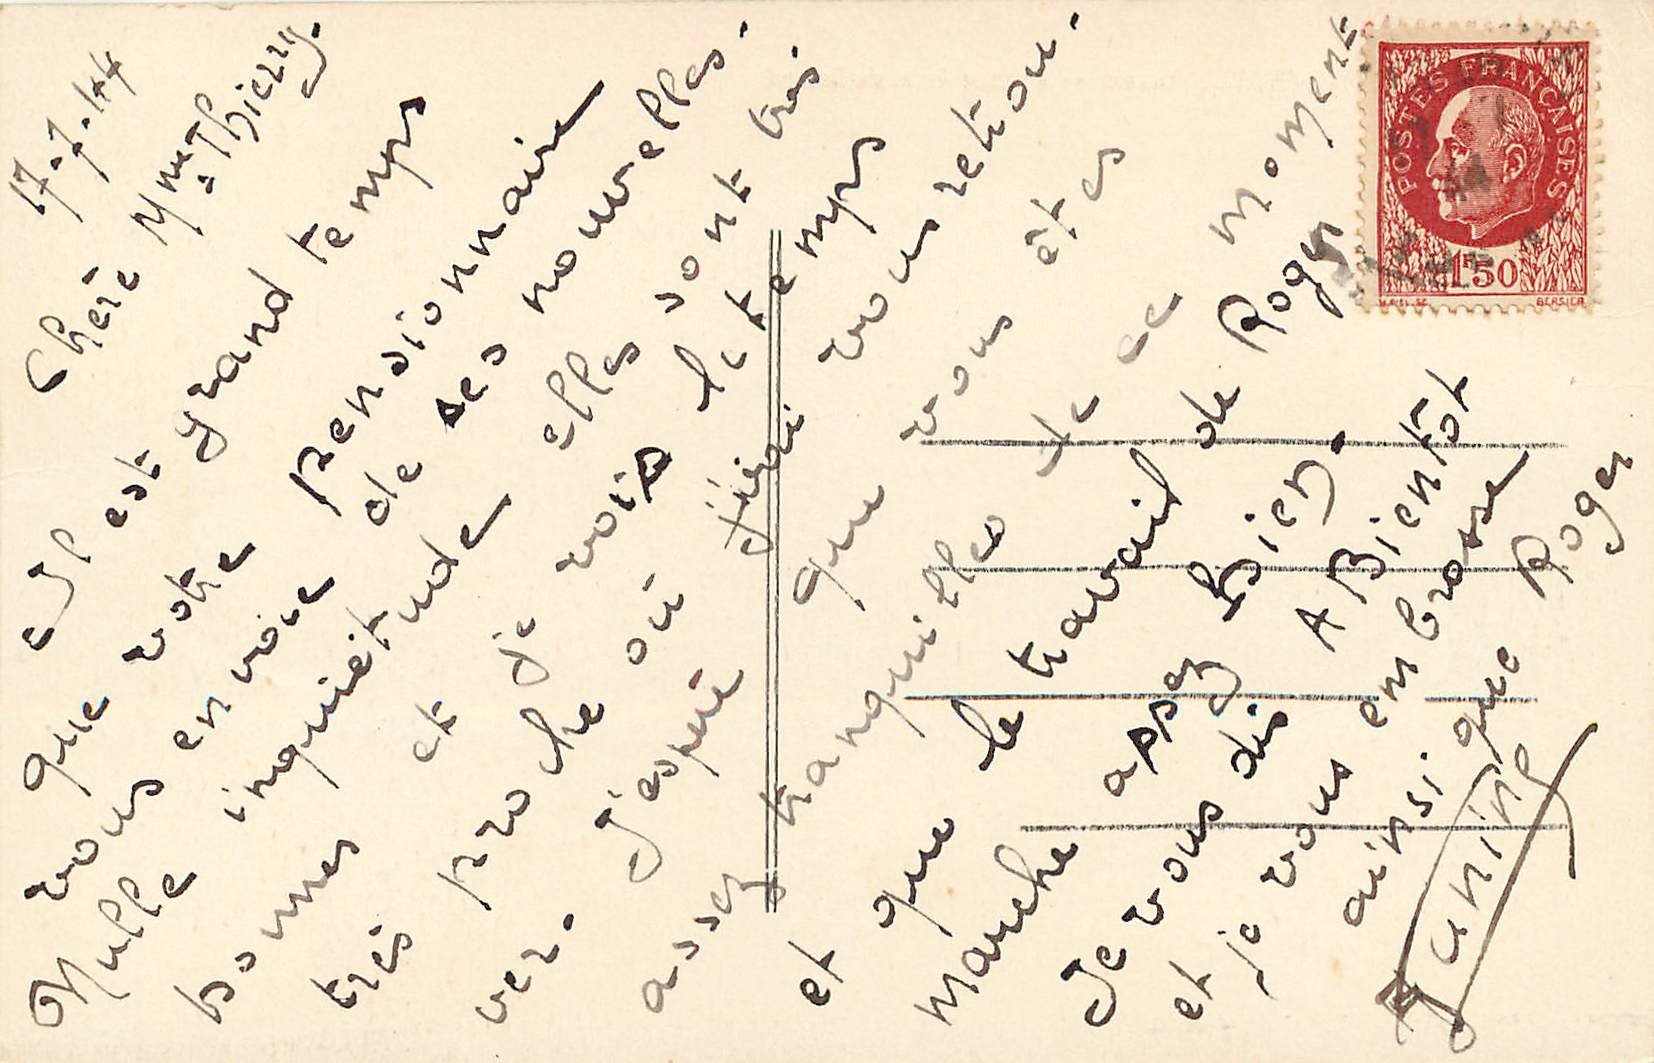 17-7-44
Chère Mme Thierry.
Il est grand temps
que votre pensionnaire
vous envoie de ses nouvelles.
Nulle inquietude elles sont très
bonnes et je vois le temps
très proche ou j'irai vous retrou-
ver. J'espere que vous êtes
assez tranquilles de ce moment
et que le travail de Roger
marche assez bien.
Je vous dis A Bientôt
et je vous embrasse
ainsi que Roger
Janine
POSTES FRANÇAISES
1F50
BERSIER